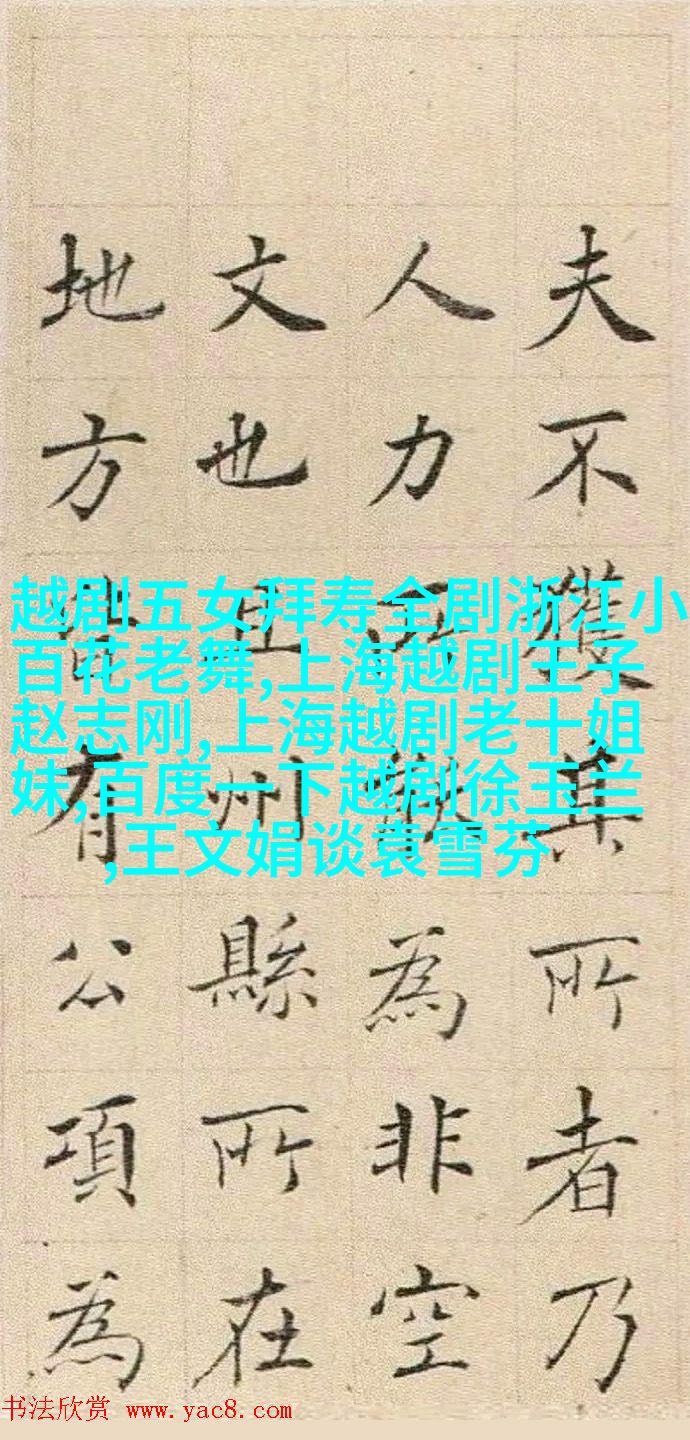 夫不獲其所者乃
人力為非空
文也且州縣所在
地方有公項為
越剧五女拜寿全剧浙江小
百花老舞,上海越剧王子
赵志刚,上海越剧老十姐
妹,百度一下越剧徐玉兰
,王文娟谈袁雪芬
书法欣赏 www.yac8.com